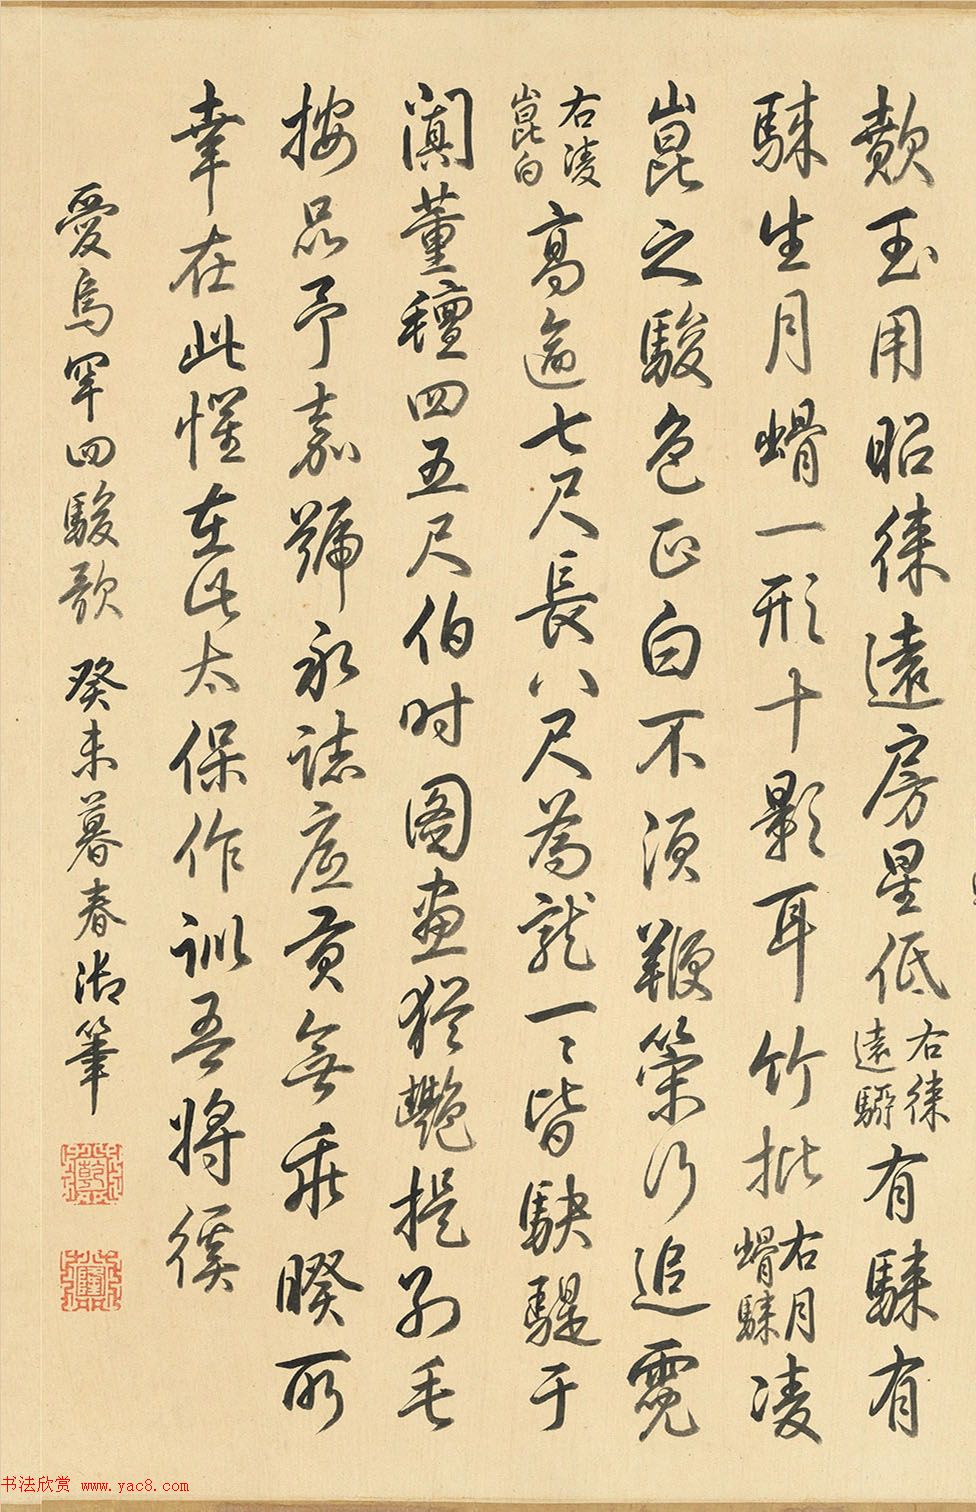 颣玉用昭徠遠房星低右徠遠騚有騋有
騋生月䯝一形十影耳竹批右月䯝騋凌
崑之駿色正白不須鞭策行追霓
右凌崑白高逾七尺長八尺為龍一〻皆駃騠于
闐董氊四五尺伯时圖畫猶艷提別毛
按品予嘉號永誌底貢無乖暌所
幸在此懼在此太保作訓吾將徯
愛烏罕四駿歌 癸未暮春御筆
乾
書法欣赏 www.yac8.com